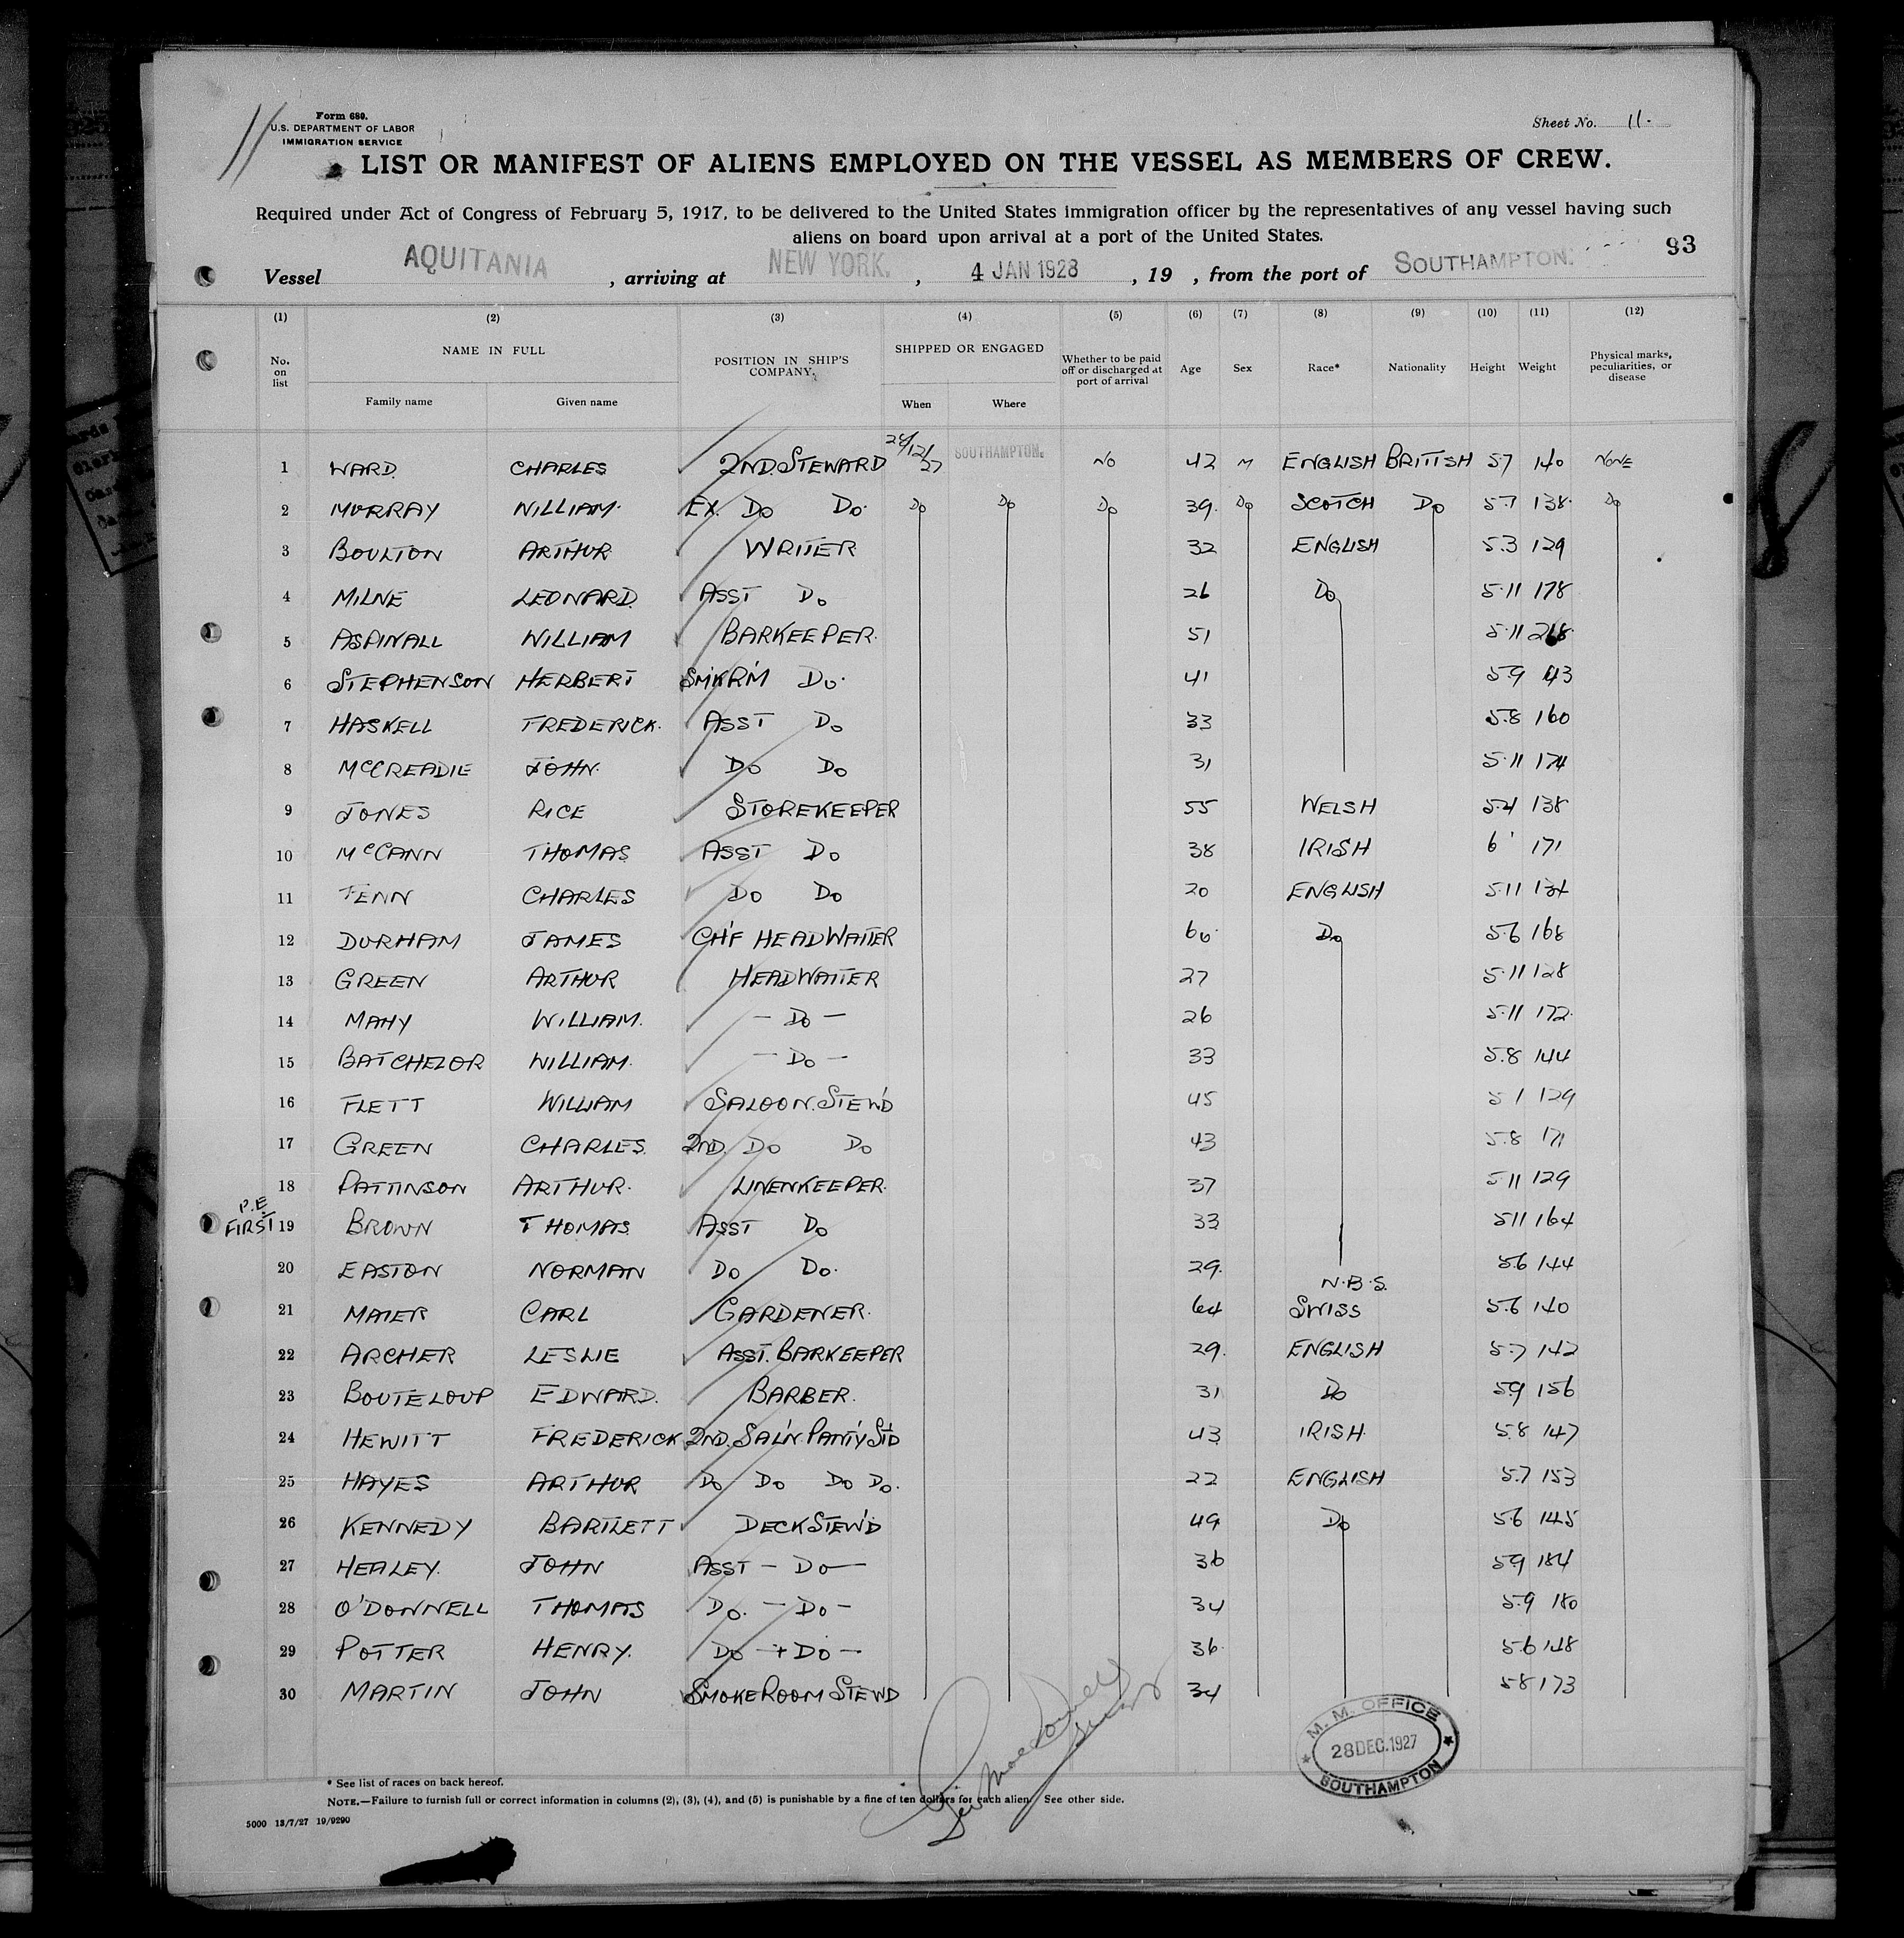 Form 680.
U.S. DEPARTMENT OF LABOR
IMMIGRATION SERVICE
11
Sheet No. 11.
LIST OR MANIFEST OF ALIENS EMPLOYED ON THE VESSEL AS MEMBERS OF CREW.
Required under Act of Congress of February 5, 1917, to be delivered to the United States immigration officer by the representatives of any vessel having such
aliens on board upon arrival at a port of the United States.
93
Vessel AQUITANIA, arriving at NEW YORK., 4 JAN 1928, 19 , from the port of SOUTHAMPTON.
(1) (2) (3) (4) (5) (6) (7) (8) (9) (10) (11) (12)
No. on list NAME IN FULL Family name Given name POSITION IN SHIP'S COMPANY. SHIPPED OR ENGAGED When Where Whether to be paid off or discharged at port of arrival Age Sex Race* Nationality Height Weight Physical marks, peculiarities, or disease
1 WARD. CHARLES 2ND. STEWARD 28/12/27 SOUTHAMPTON. NO 42 M ENGLISH BRITISH 5.7 140 NONE
2 MURRAY WILLIAM. EX. DO DO. DO DO DO 39. DO SCOTCH DO 5.7 138. DO
3 BOULTON ARTHUR WRITER 32 ENGLISH 5.3 129
4 MILNE LEONARD. ASST DO 26 DO 5.11 178
5 ASPINALL WILLIAM BARKEEPER. 51 5.11
6 STEPHENSON HERBERT SMK'R'M DO. 41 5.9
7 HASKELL FREDERICK. ASST DO 33 5.8 160
8 McCREADIE JOHN. DO DO 31 5.11 174
9 JONES RICE STOREKEEPER 55 WELSH 5.4 138
10 McCANN THOMAS ASST DO 38 IRISH 6' 171
11 FENN CHARLES DO DO 20 ENGLISH 5.11 134
12 DURHAM JAMES CH'F HEADWAITER 60. DO 5.6 168
13 GREEN ARTHUR HEADWAITER 27 5.11 128
14 MAHY WILLIAM. - DO - 26 5.11 172.
15 BATCHELOR WILLIAM. - DO - 33 5.8 144
16 FLETT WILLIAM SALOON. STEW'D 45 5 1 129
17 GREEN CHARLES. 2ND. DO DO 43 5.8 171
18 PATTINSON ARTHUR. LINENKEEPER. 37 5 11 129
P.E. FIRST 19 BROWN THOMAS. ASST DO 33 511 164
20 EASTON NORMAN DO DO. 29. 5.6 144
N.B.S.
21 MAIER CARL GARDENER. 64 SWISS 5.6 140
22 ARCHER LESLIE ASST. BARKEEPER 29. ENGLISH 5.7 142
23 BOUTELOUP EDWARD. BARBER. 31 DO 5.9 156
24 HEWITT FREDERICK 2ND. SAL'N PANT'Y ST'D 43 IRISH. 5.8 147
25 HAYES ARTHUR DO DO DO DO. 22 ENGLISH 5.7 153
26 KENNEDY BARTLETT DECK STEW'D 49 DO 5.6 145
27 HEALEY. JOHN ASST - DO - 36 5.9 184
28 O'DONNELL THOMAS DO. - DO - 34 5.9 180
29 POTTER HENRY. DO - DO - 36. 5.6 148
30 MARTIN JOHN SMOKEROOM STEWD 34 5.8 173
M. M. OFFICE
28 DEC. 1927
SOUTHAMPTON
* See list of races on back hereof.
NOTE.—Failure to furnish full or correct information in columns (2), (3), (4), and (5) is punishable by a fine of ten dollars for each alien. See other side.
5000 13/7/27 19/9290